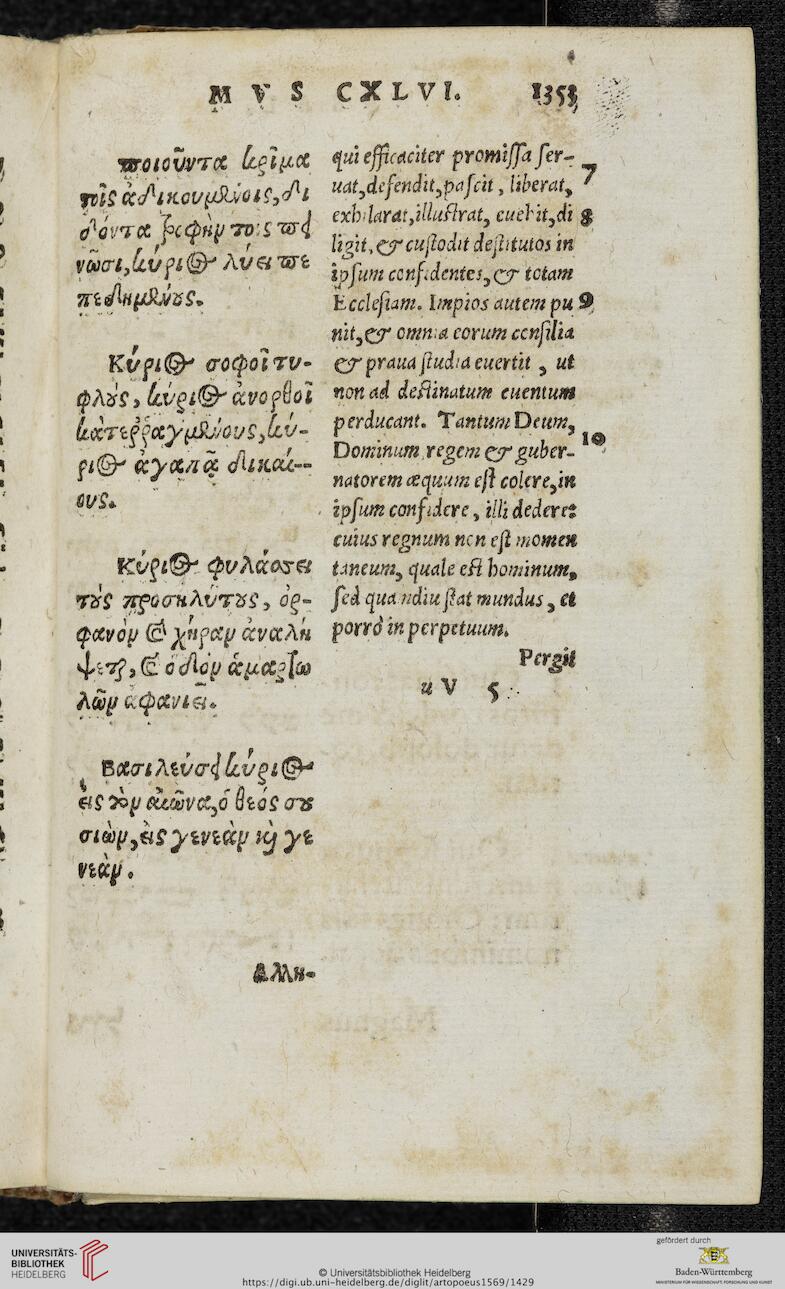 MVS CXLVI. 1353
ποιοῦντα κρῖμα
τοῖς ἀδικουμένοις, δι
δόντα τροφὴν τοῖς πει
νῶσι, κύριος λύει πε
πεδημένους.
Κύριος σοφοῖ τυ-
φλούς, κύριος ἀνορθοῖ
κατερραγμένους, κύ-
ριος ἀγαπᾷ δικαί-
ους.
Κύριος φυλάσσει
τοὺς προσηλύτους, ὀρ-
φανὸν καὶ χήραν ἀναλή
ψεται, καὶ ὁδὸν ἁμαρτω
λῶν ἀφανιεῖ.
Βασιλεύσει κύριος
εἰς τὸν αἰῶνα, ὁ θεός σου
σιὼν, εἰς γενεὰν καὶ γε
νεάν.
Αλλη-
qui efficaciter promissa ser-
uat, defendit, pascit, liberat, 7
exhilarat, illustrat, euehit, di 8
ligit, & custodit destitutos in
ipsum confidentes, & totam
Ecclesiam. Impios autem pu 9
nit, & omnia eorum consilia
& praua studia euertit, ut
non ad destinatum euentum
perducant. Tantum Deum,
Dominum regem & guber- 10
natorem æquum est colere, in
ipsum confidere, illi dedere:
cuius regnum non est momen
taneum, quale est hominum,
sed quandiu stat mundus, et
porrò in perpetuum.
Pergit
u V 5
UNIVERSITÄTS-
BIBLIOTHEK
HEIDELBERG
© Universitätsbibliothek Heidelberg
https://digi.ub.uni-heidelberg.de/diglit/artopoeus1569/1429
gefördert durch
Baden-Württemberg
MINISTERIUM FÜR WISSENSCHAFT, FORSCHUNG UND KUNST